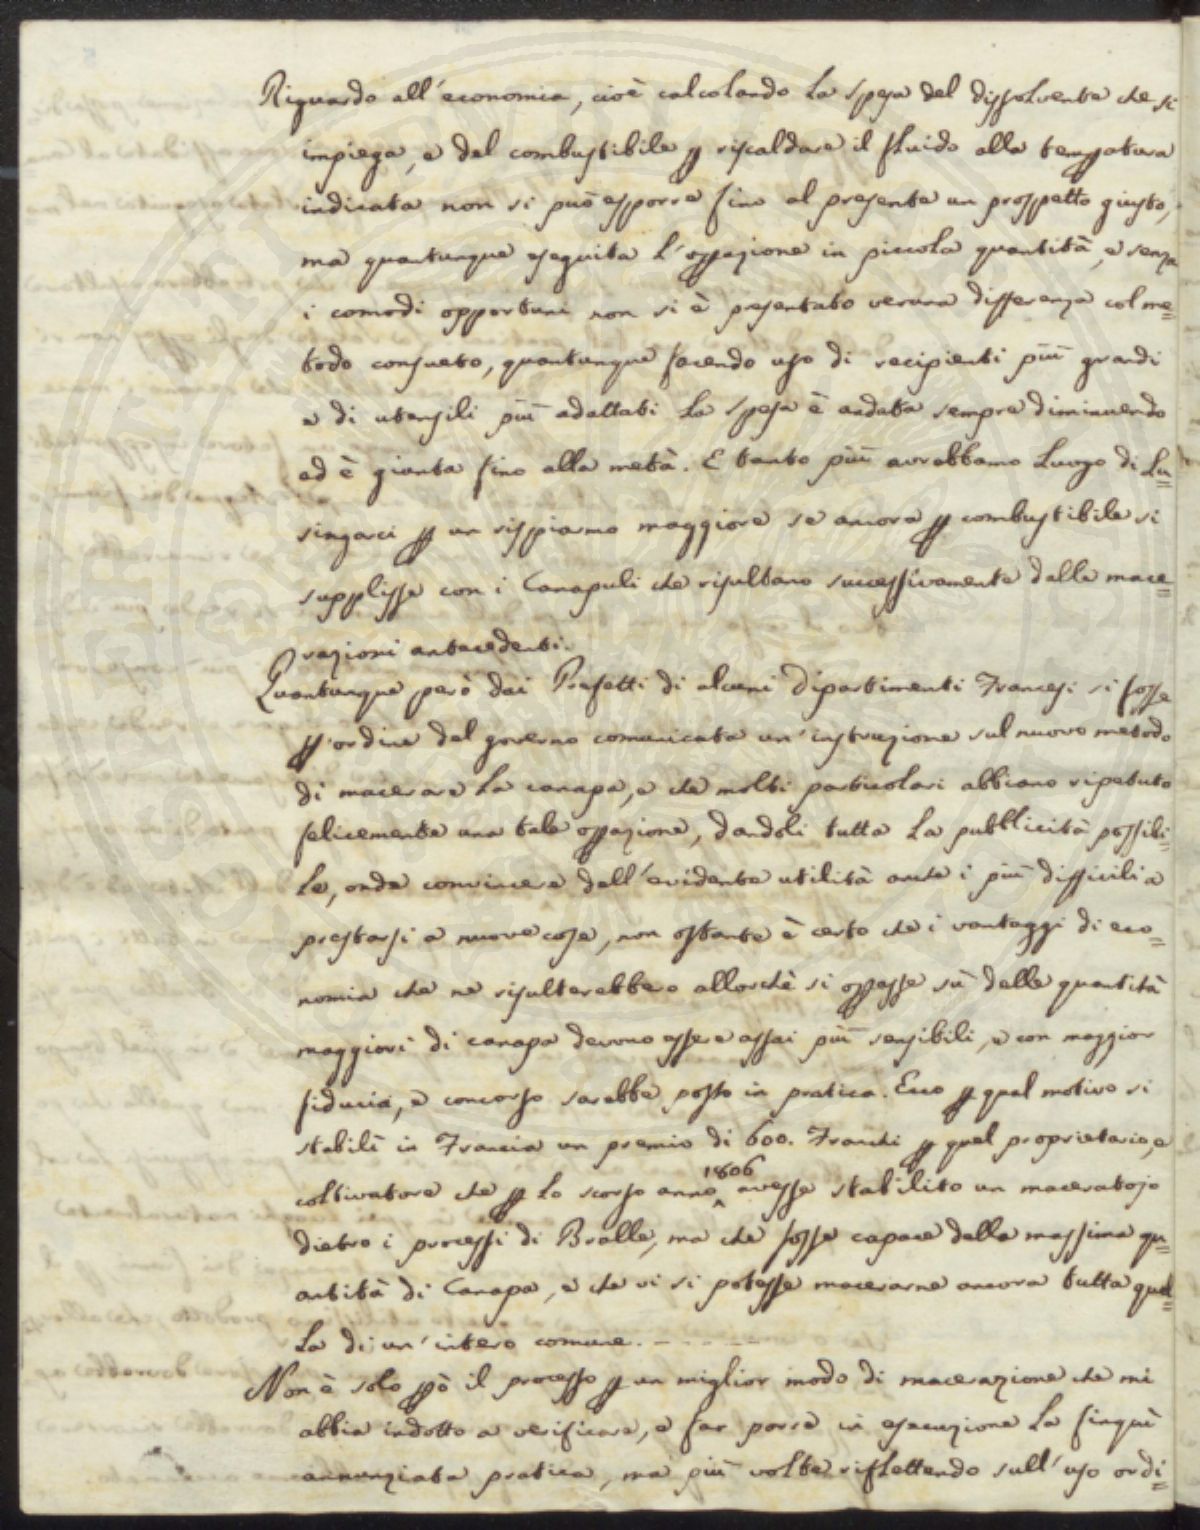 Riguardo all'economia, cioè calcolando la spesa del dissolvente che si
impiega, e del combustibile p riscaldare il fluido alla tempatura
indicata non si può esporre fino al presente un prospetto giusto,
ma quantunque eseguita l'oppazione in piccola quantità, e senza
i comodi opportuni non si è presentato veruna differenza col me=
todo consueto, quantunque facendo uso di recipienti più grandi
e di utensili più adattati la spesa è andata sempre diminuendo
ed è giunta fino alla metà. E tanto più avrebbamo luogo di lu=
singarci p un rispiarmo maggiore se ancora p combustibile si
supplisse con i Canapuli che risultano successivamente dalle mace=
razioni antecedenti.
Quantunque però dai Prefetti di alcuni Dipartimenti Francesi si fosse
p ordine del governo comunicata un'instruzione sul nuovo metodo
di macerare la canapa, e che molti particolari abbiano ripetuto
felicemente una tale oppazione, dandoli tutta la pubblicità possibi=
le, onde convincere dell'evidente utilità anche i più difficili a
prestarsi a nuove cose, non ostante è certo che i vantaggi di eco=
nomia che ne risulterebbero allorchè si oppesse sù delle quantità
maggiori di canapa devono essere assai più sensibili, e con maggior
fiducia, e concorso sarebbe posto in pratica. Ecco p qual motivo si
stabilì in Francia un premio di 600. Franchi p quel proprietario, e
coltivatore che p lo scorso anno 1806 avesse stabilito un maceratojo
dietro i processi di Bralle, ma che fosse capace della massima qu=
antità di Canapa, e che vi si potesse macerarne ancora tutta quel=
la di un'intero comune. - - - - -
Non è solo pò il processo p un miglior modo di macerazione che mi
abbia indotto a verificare, e far porre in esecuzione la finquì
annunziata pratica, ma più volte riflettendo sull'uso ordi=